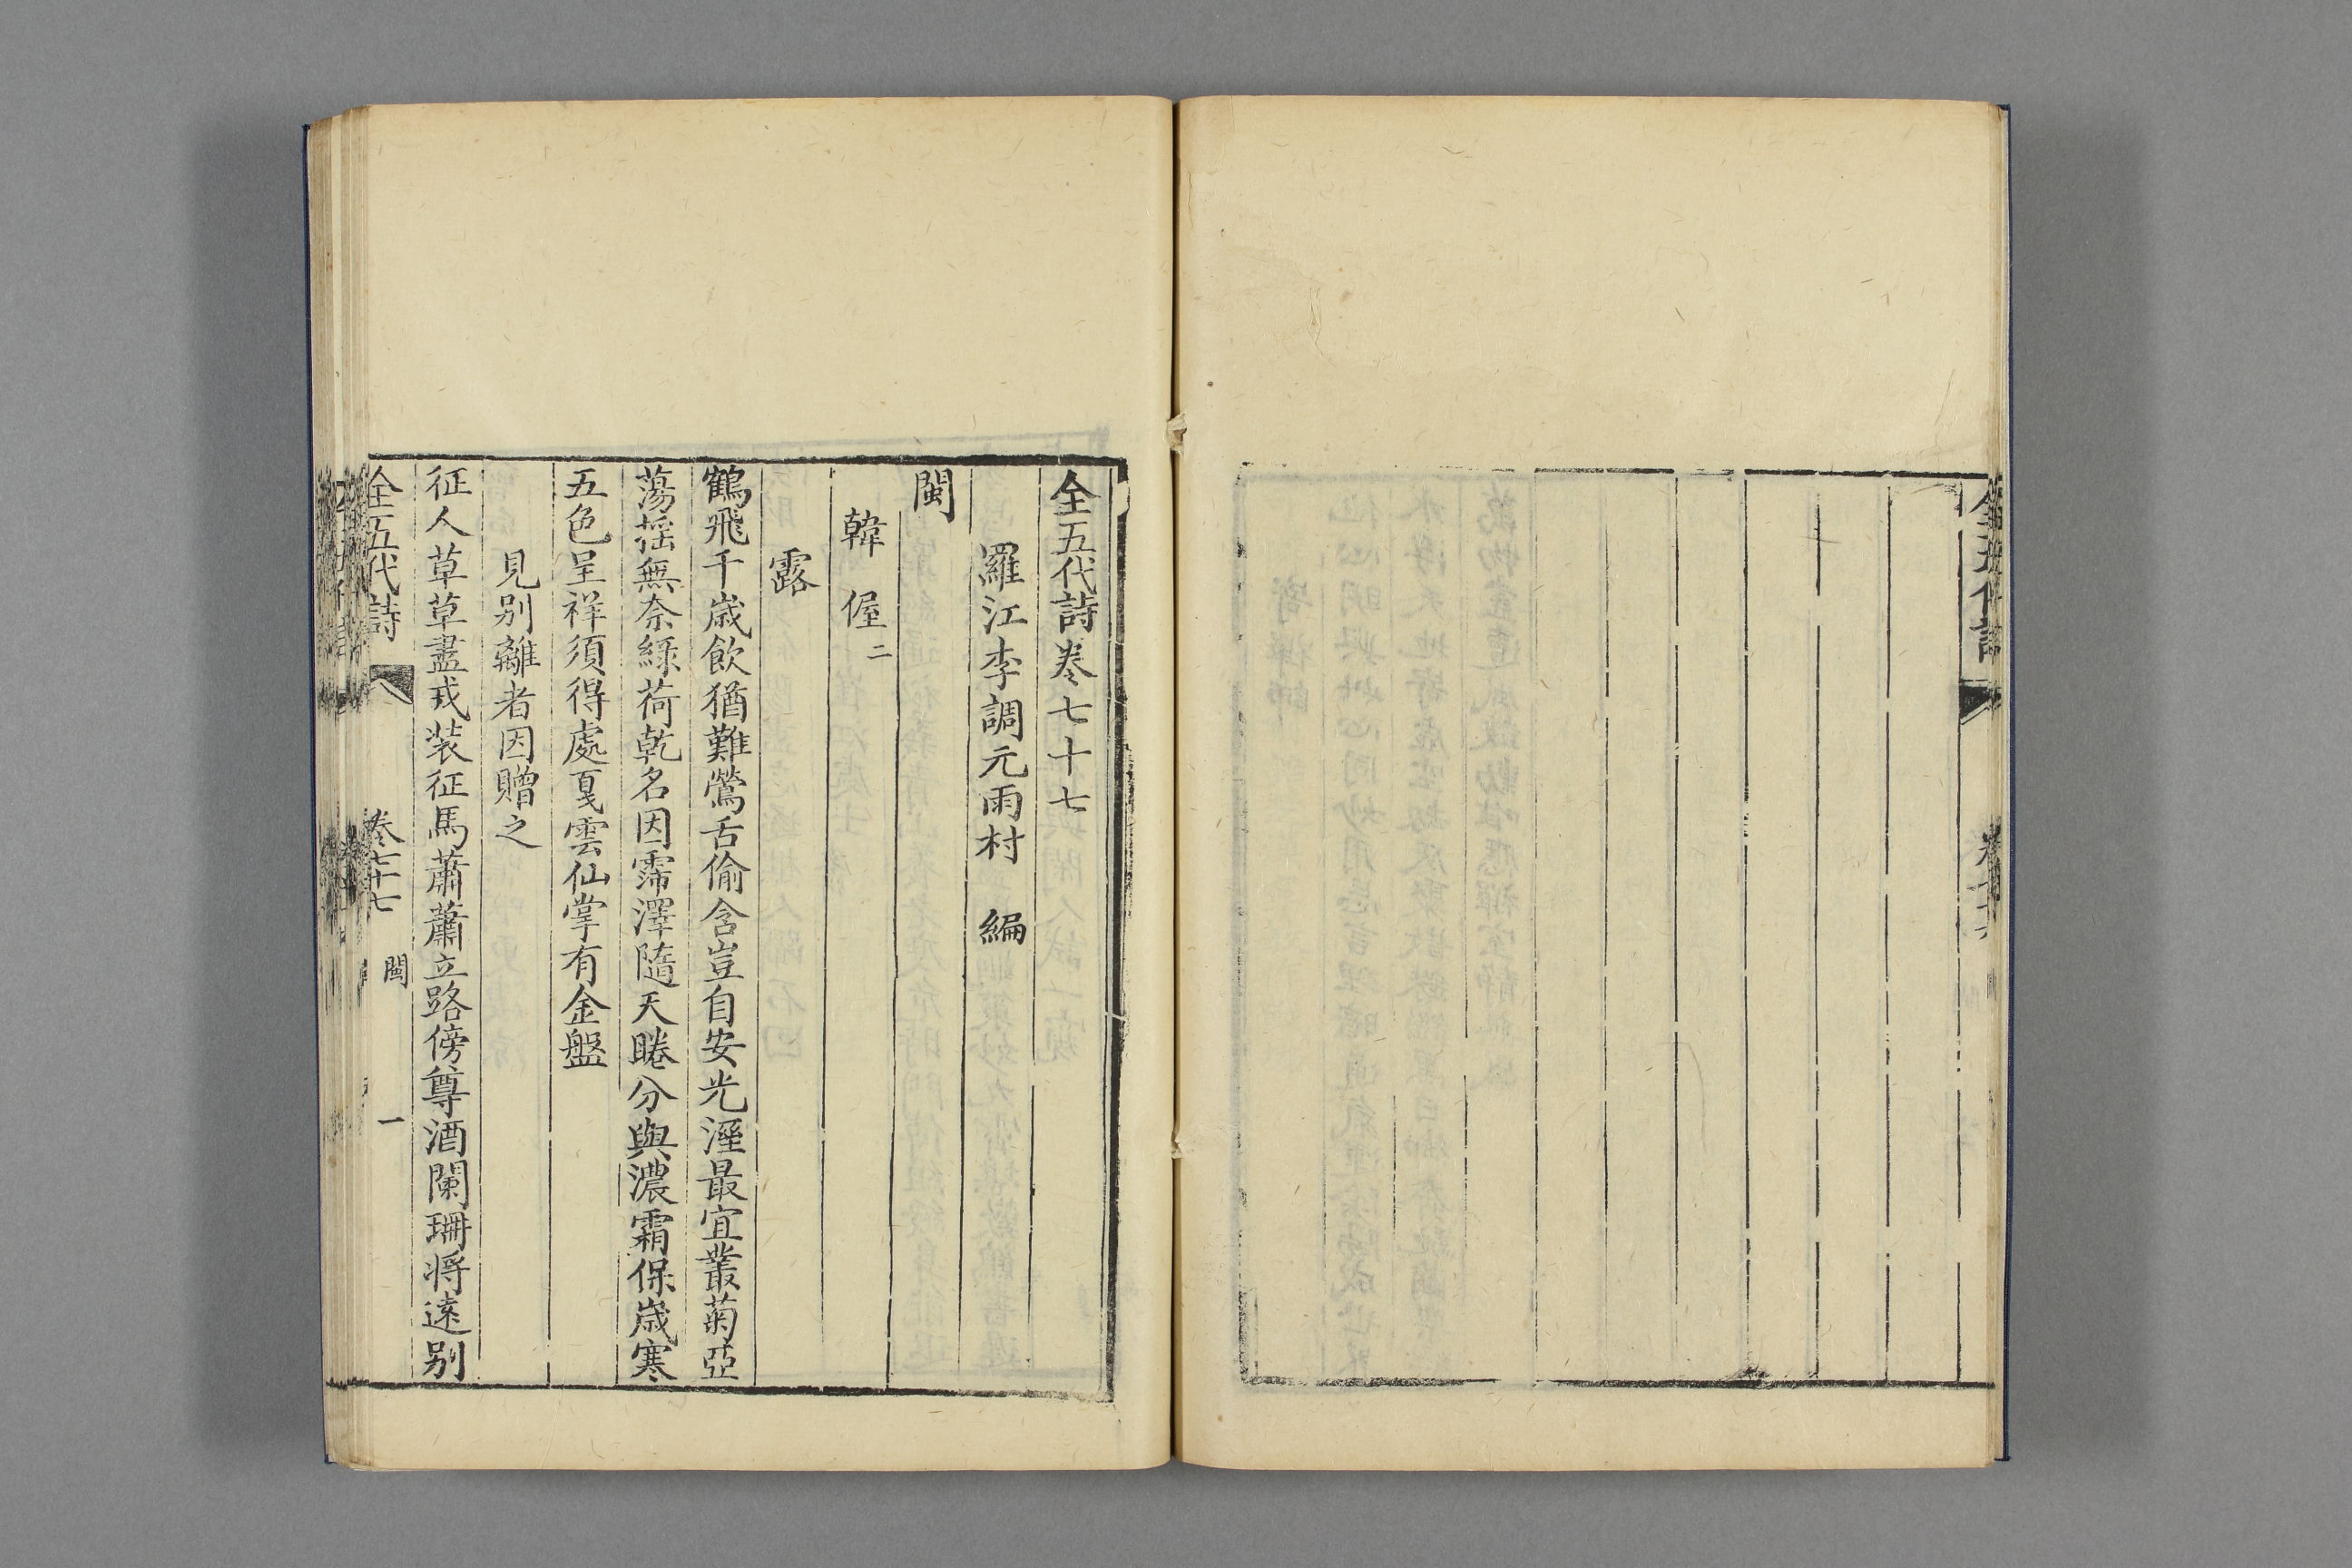 全五代詩卷七十七
羅江李調元雨村　編
閩
韓　偓二
露
鶴飛千歲飲猶難鶯舌偷含豈自安光溼最宜叢菊亞
蕩搖無奈綠荷乾名因霈澤隨天睠分與濃霜保歲寒
五色呈祥須得處戞雲仙掌有金盤
見別離者因贈之
征人草草盡戎装征馬蕭蕭立路傍尊酒闌珊將遠別
全五代詩　卷七十七　閩　一